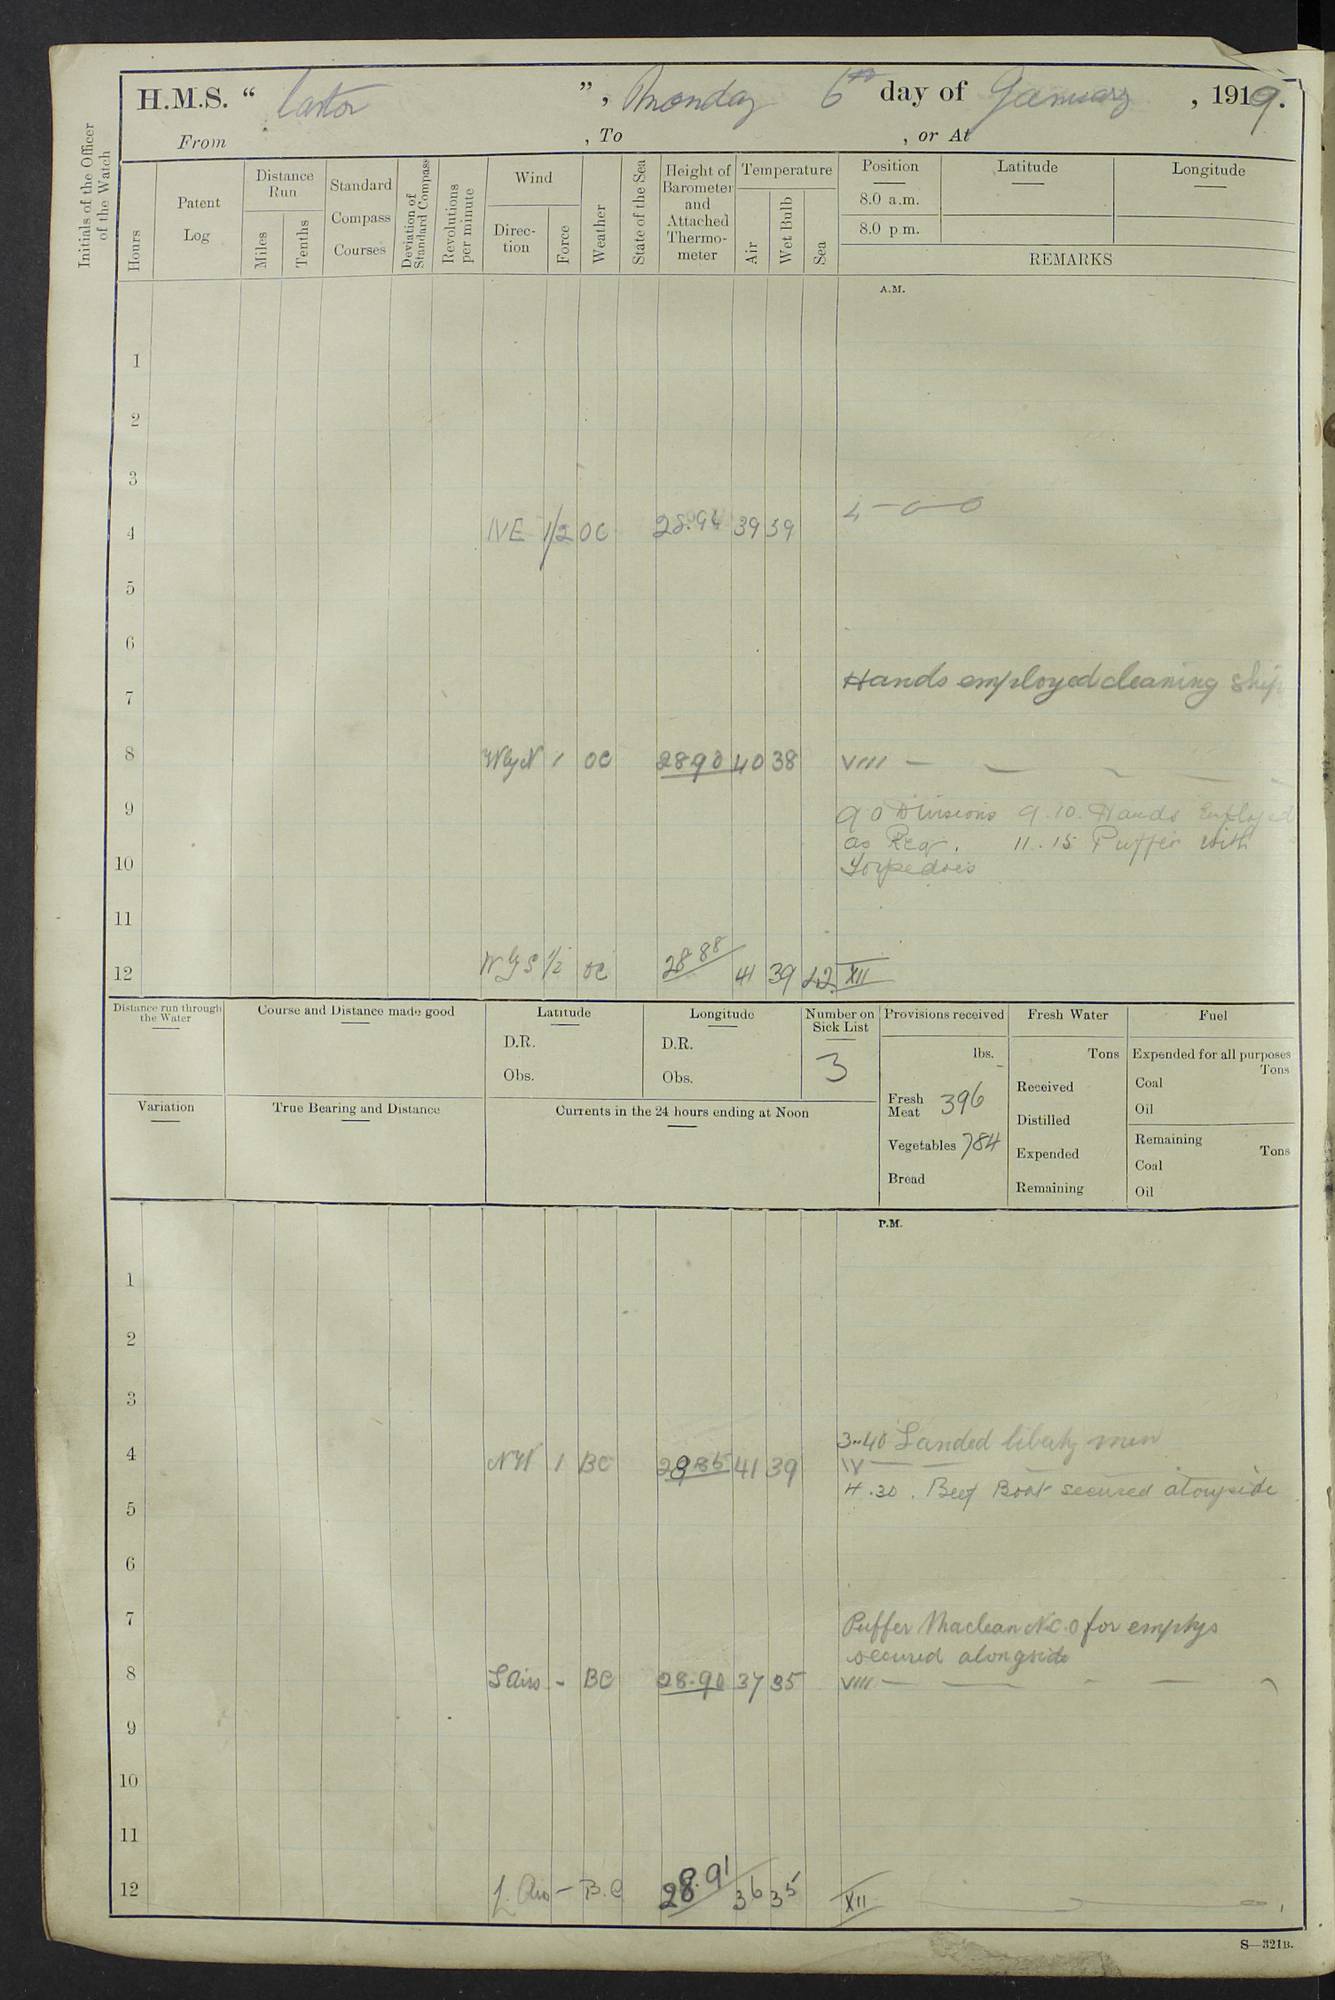 H.M.S. " Castor ", Monday 6th day of January, 1919.
From , To , or At
Initials of the Officer of the Watch
Hours
Patent Log
Distance Run
Miles
Tenths
Standard Compass Courses
Deviation of Standard Compass
Revolutions per minute
Wind
Direc-tion
Force
Weather
State of the Sea
Height of Barometer and Attached Thermo-meter
Temperature
Air
Wet Bulb
Sea
Position
8.0 a.m.
8.0 p m.
Latitude
Longitude
REMARKS
A.M.
1
2
3
4 NE 1/2 OC 28.94 39 39
5
6
Hands employed cleaning ship
7
8 WbyN 1 OC 28.90 40 38 VIII
9 9 0 Divisions 9.10. Hands Employed
as Req. 11.15 Puffer with
10 Torpedoes
11
12 W y S 1/2 OC 28 88 41 39 42 XII
Distance run through the Water
Course and Distance made good
Latitude
D.R.
Obs.
Longitude
D.R.
Obs.
Number on Sick List
3
Provisions received
lbs.
Fresh Meat 396
Vegetables 784
Bread
Fresh Water
Tons
Received
Distilled
Expended
Remaining
Fuel
Expended for all purposes
Tons
Coal
Oil
Remaining
Tons
Coal
Oil
Variation
True Bearing and Distance
Currents in the 24 hours ending at Noon
P.M.
1
2
3
3.40 Landed liberty men
4 1 BC 28 85 41 39 IV
4.30. Beef Boat secured alongside
5
6
7 Puffer Maclean No. for emptys
secured alongside
8 L Airs - BC 28.90 37 35 VIII
9
10
11
12 L. Airs - B.C 28.91 36 35 XII
S—321B.